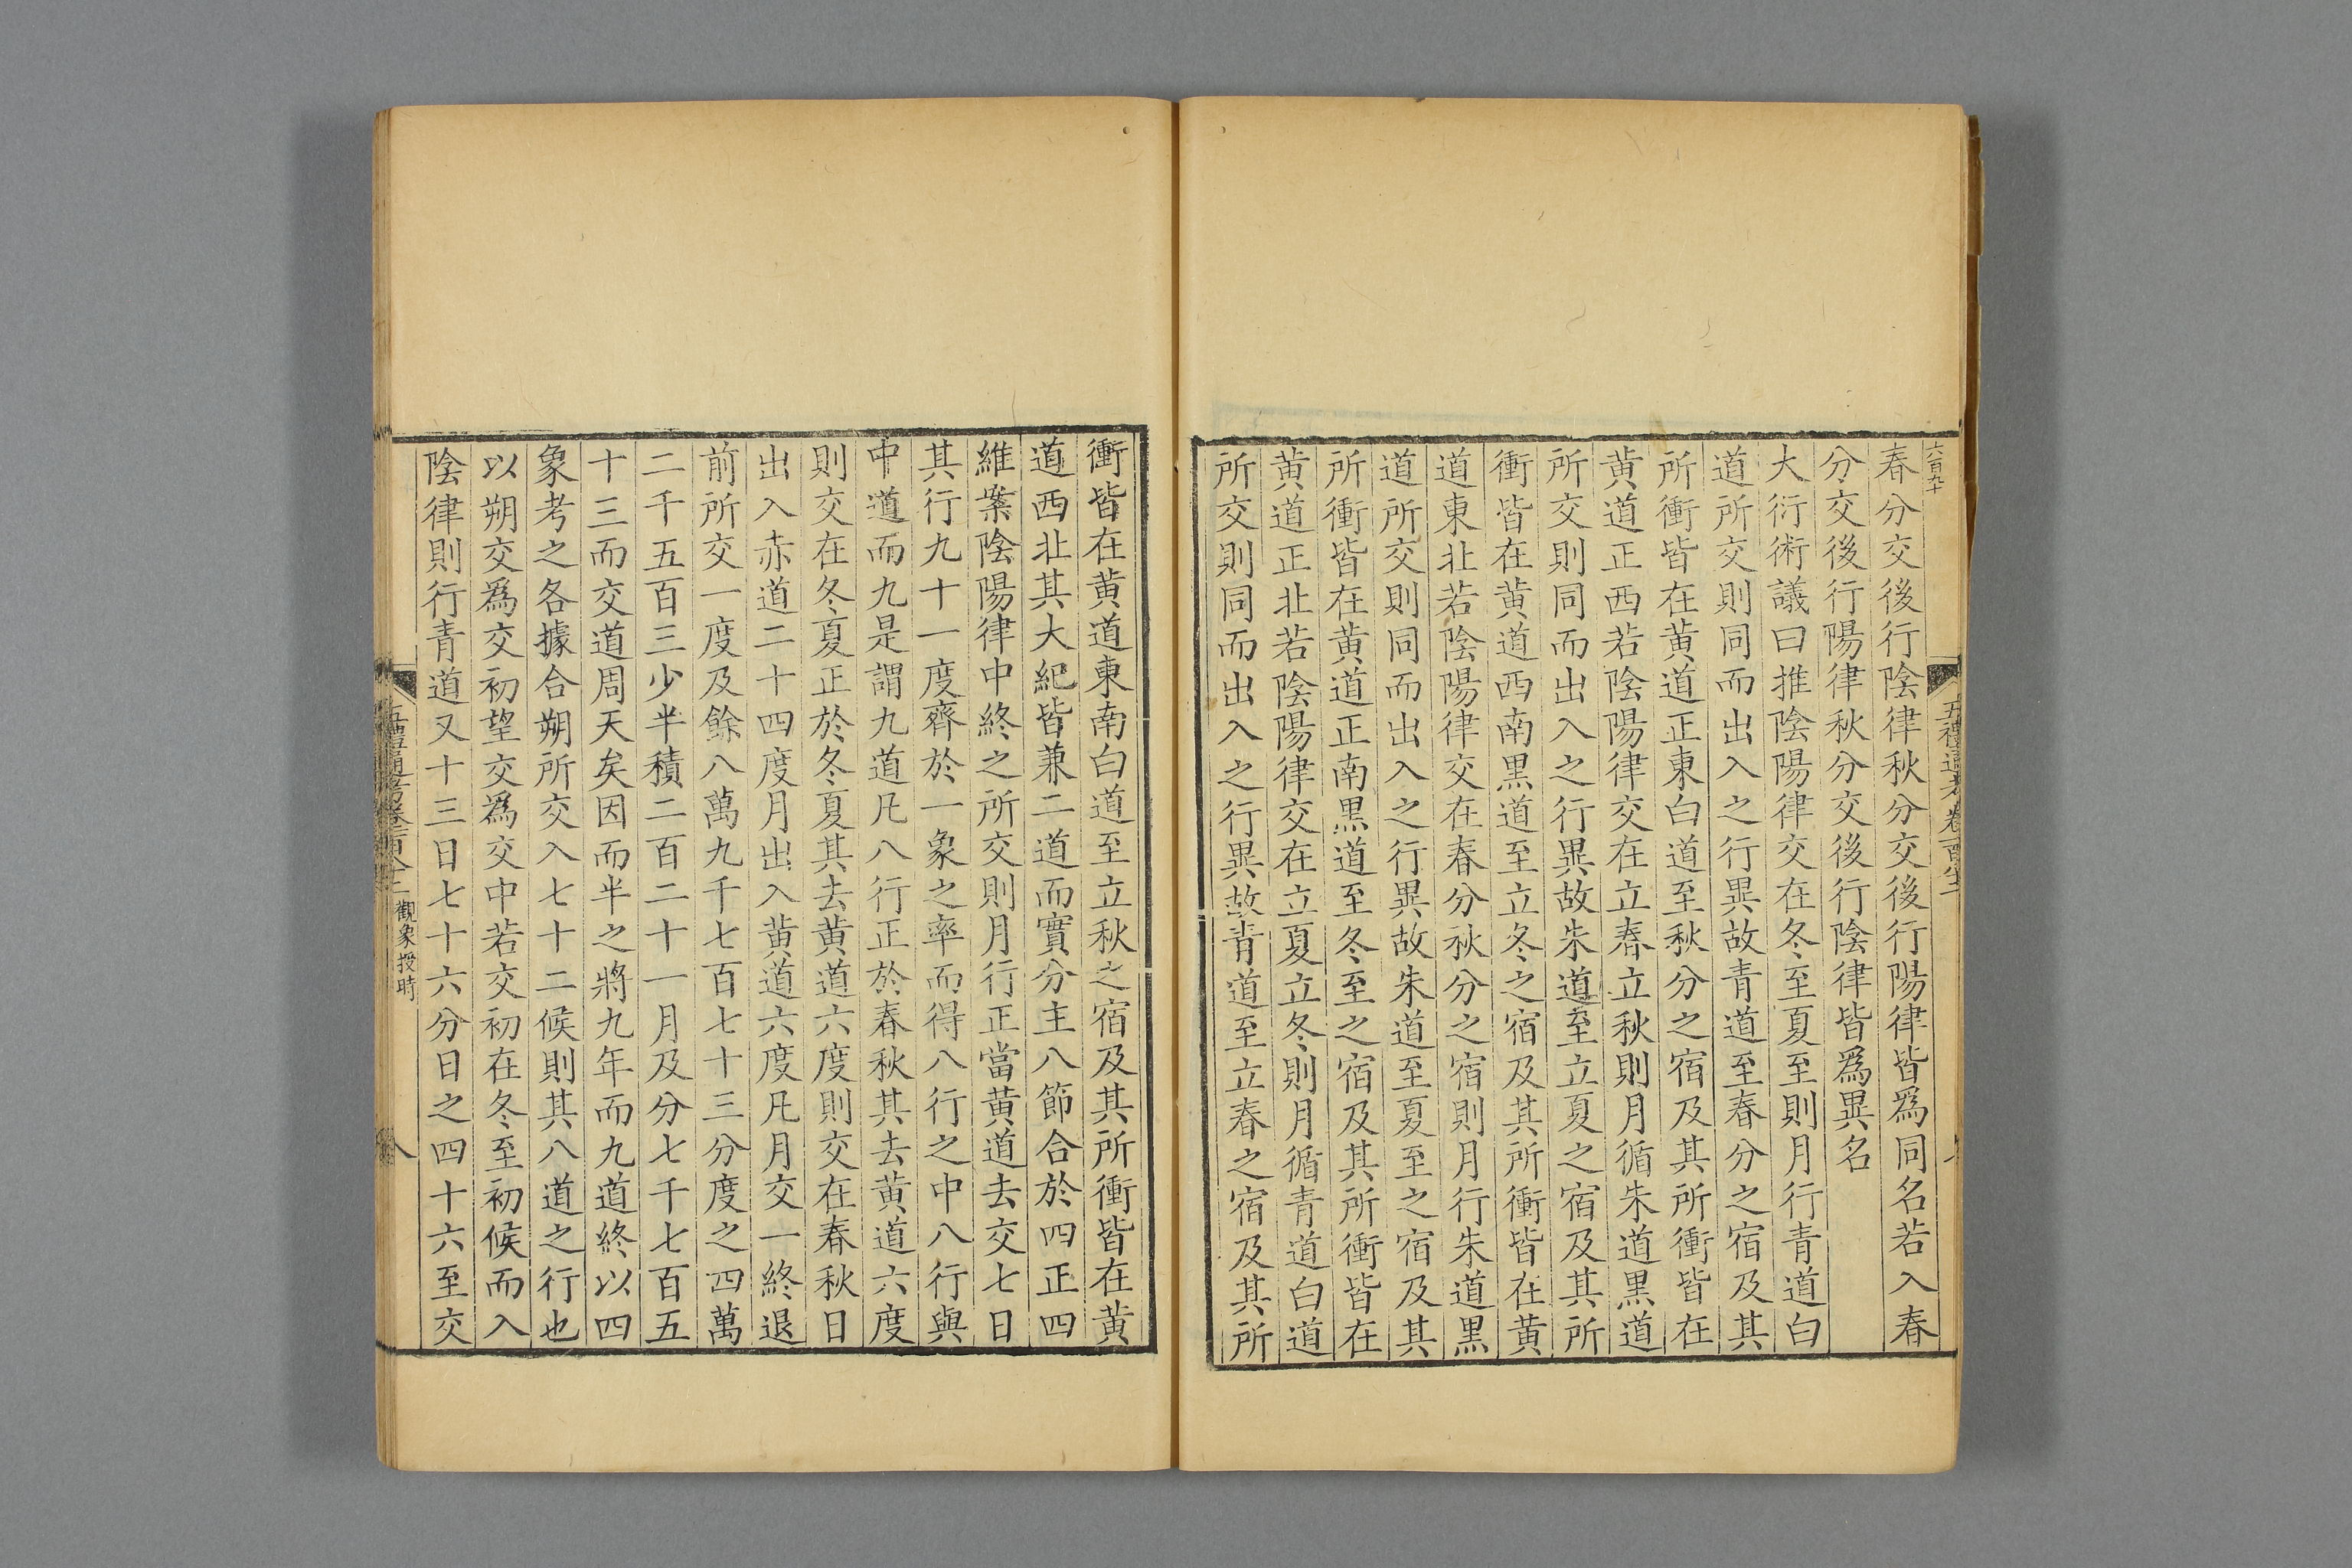 六百九十
春分交後行陰律秋分交後行陽律皆爲同名若入春
分交後行陽律秋分交後行陰律皆爲異名
大衍術議曰推陰陽律交在冬至夏至則月行青道白
道所交則同而出入之行異故青道至春分之宿及其
所衝皆在黄道正東白道至秋分之宿及其所衝皆在
黄道正西若陰陽律交在立春立秋則月循朱道黒道
所交則同而出入之行異故朱道至立夏之宿及其所
衝皆在黄道西南黒道至立冬之宿及其所衝皆在黄
道東北若陰陽律交在春分秋分之宿則月行朱道黒
道所交則同而出入之行異故朱道至夏至之宿及其
所衝皆在黄道正南黒道至冬至之宿及其所衝皆在
黄道正北若陰陽律交在立夏立冬則月循青道白道
所交則同而出入之行異故青道至立春之宿及其所
衝皆在黄道東南白道至立秋之宿及其所衝皆在黄
道西北其大紀皆兼二道而實分主八節合於四正四
維案陰陽律中終之所交則月行正當黄道去交七日
其行九十一度齊於一象之率而得八行之中八行與
中道而九是謂九道凡八行正於春秋其去黄道六度
則交在冬夏正於冬夏其去黄道六度則交在春秋日
出入赤道二十四度月出入黄道六度凡月交一終退
前所交一度及餘八萬九千七百七十三分度之四萬
二千五百三少半積二百二十一月及分七千七百五
十三而交道周天矣因而半之將九年而九道終以四
象考之各據合朔所交入七十二候則其八道之行也
以朔交爲交初望交爲交中若交初在冬至初候而入
陰律則行青道又十三日七十六分日之四十六至交
觀象授時
八